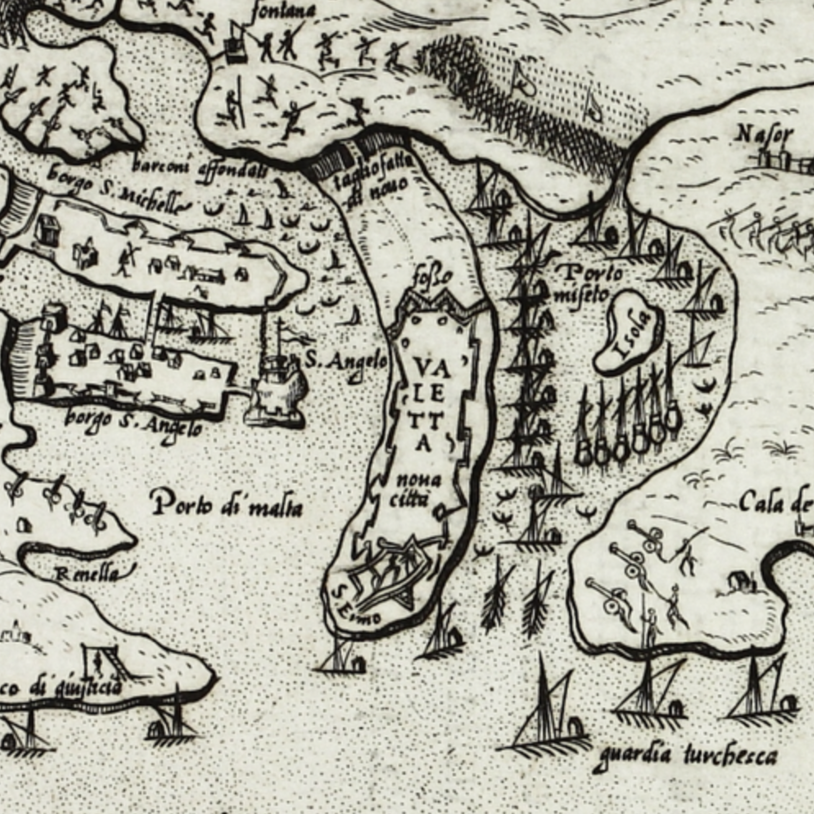 fontana
Nasor
barconi affondati
taghofatta
di novo
borgo S. Michelle
fosso
Porto
miseto
Isola
S. Angelo
VA
LE
TT
A
borgo S. Angelo
nova
città
Porto di malta
Cala de
Renella
S. Ermo
co di giusticia
guardia turchesca